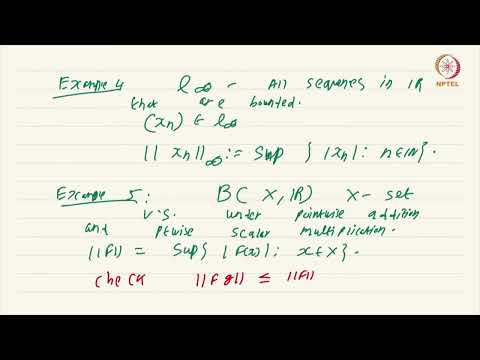 Example 4 l∞ - All sequences in IR
that are bounded.
(xn) ∈ l∞
|| xn ||∞ := Sup { |xn| : n∈IN}.
Example 5 : B( X, IR) X - set
V.S. under pointwise addition
and ptwise scalar multiplication.
||F|| = Sup{ |F(x)| ; x∈X}.
Check ||F g|| ≤ ||F||
NPTEL